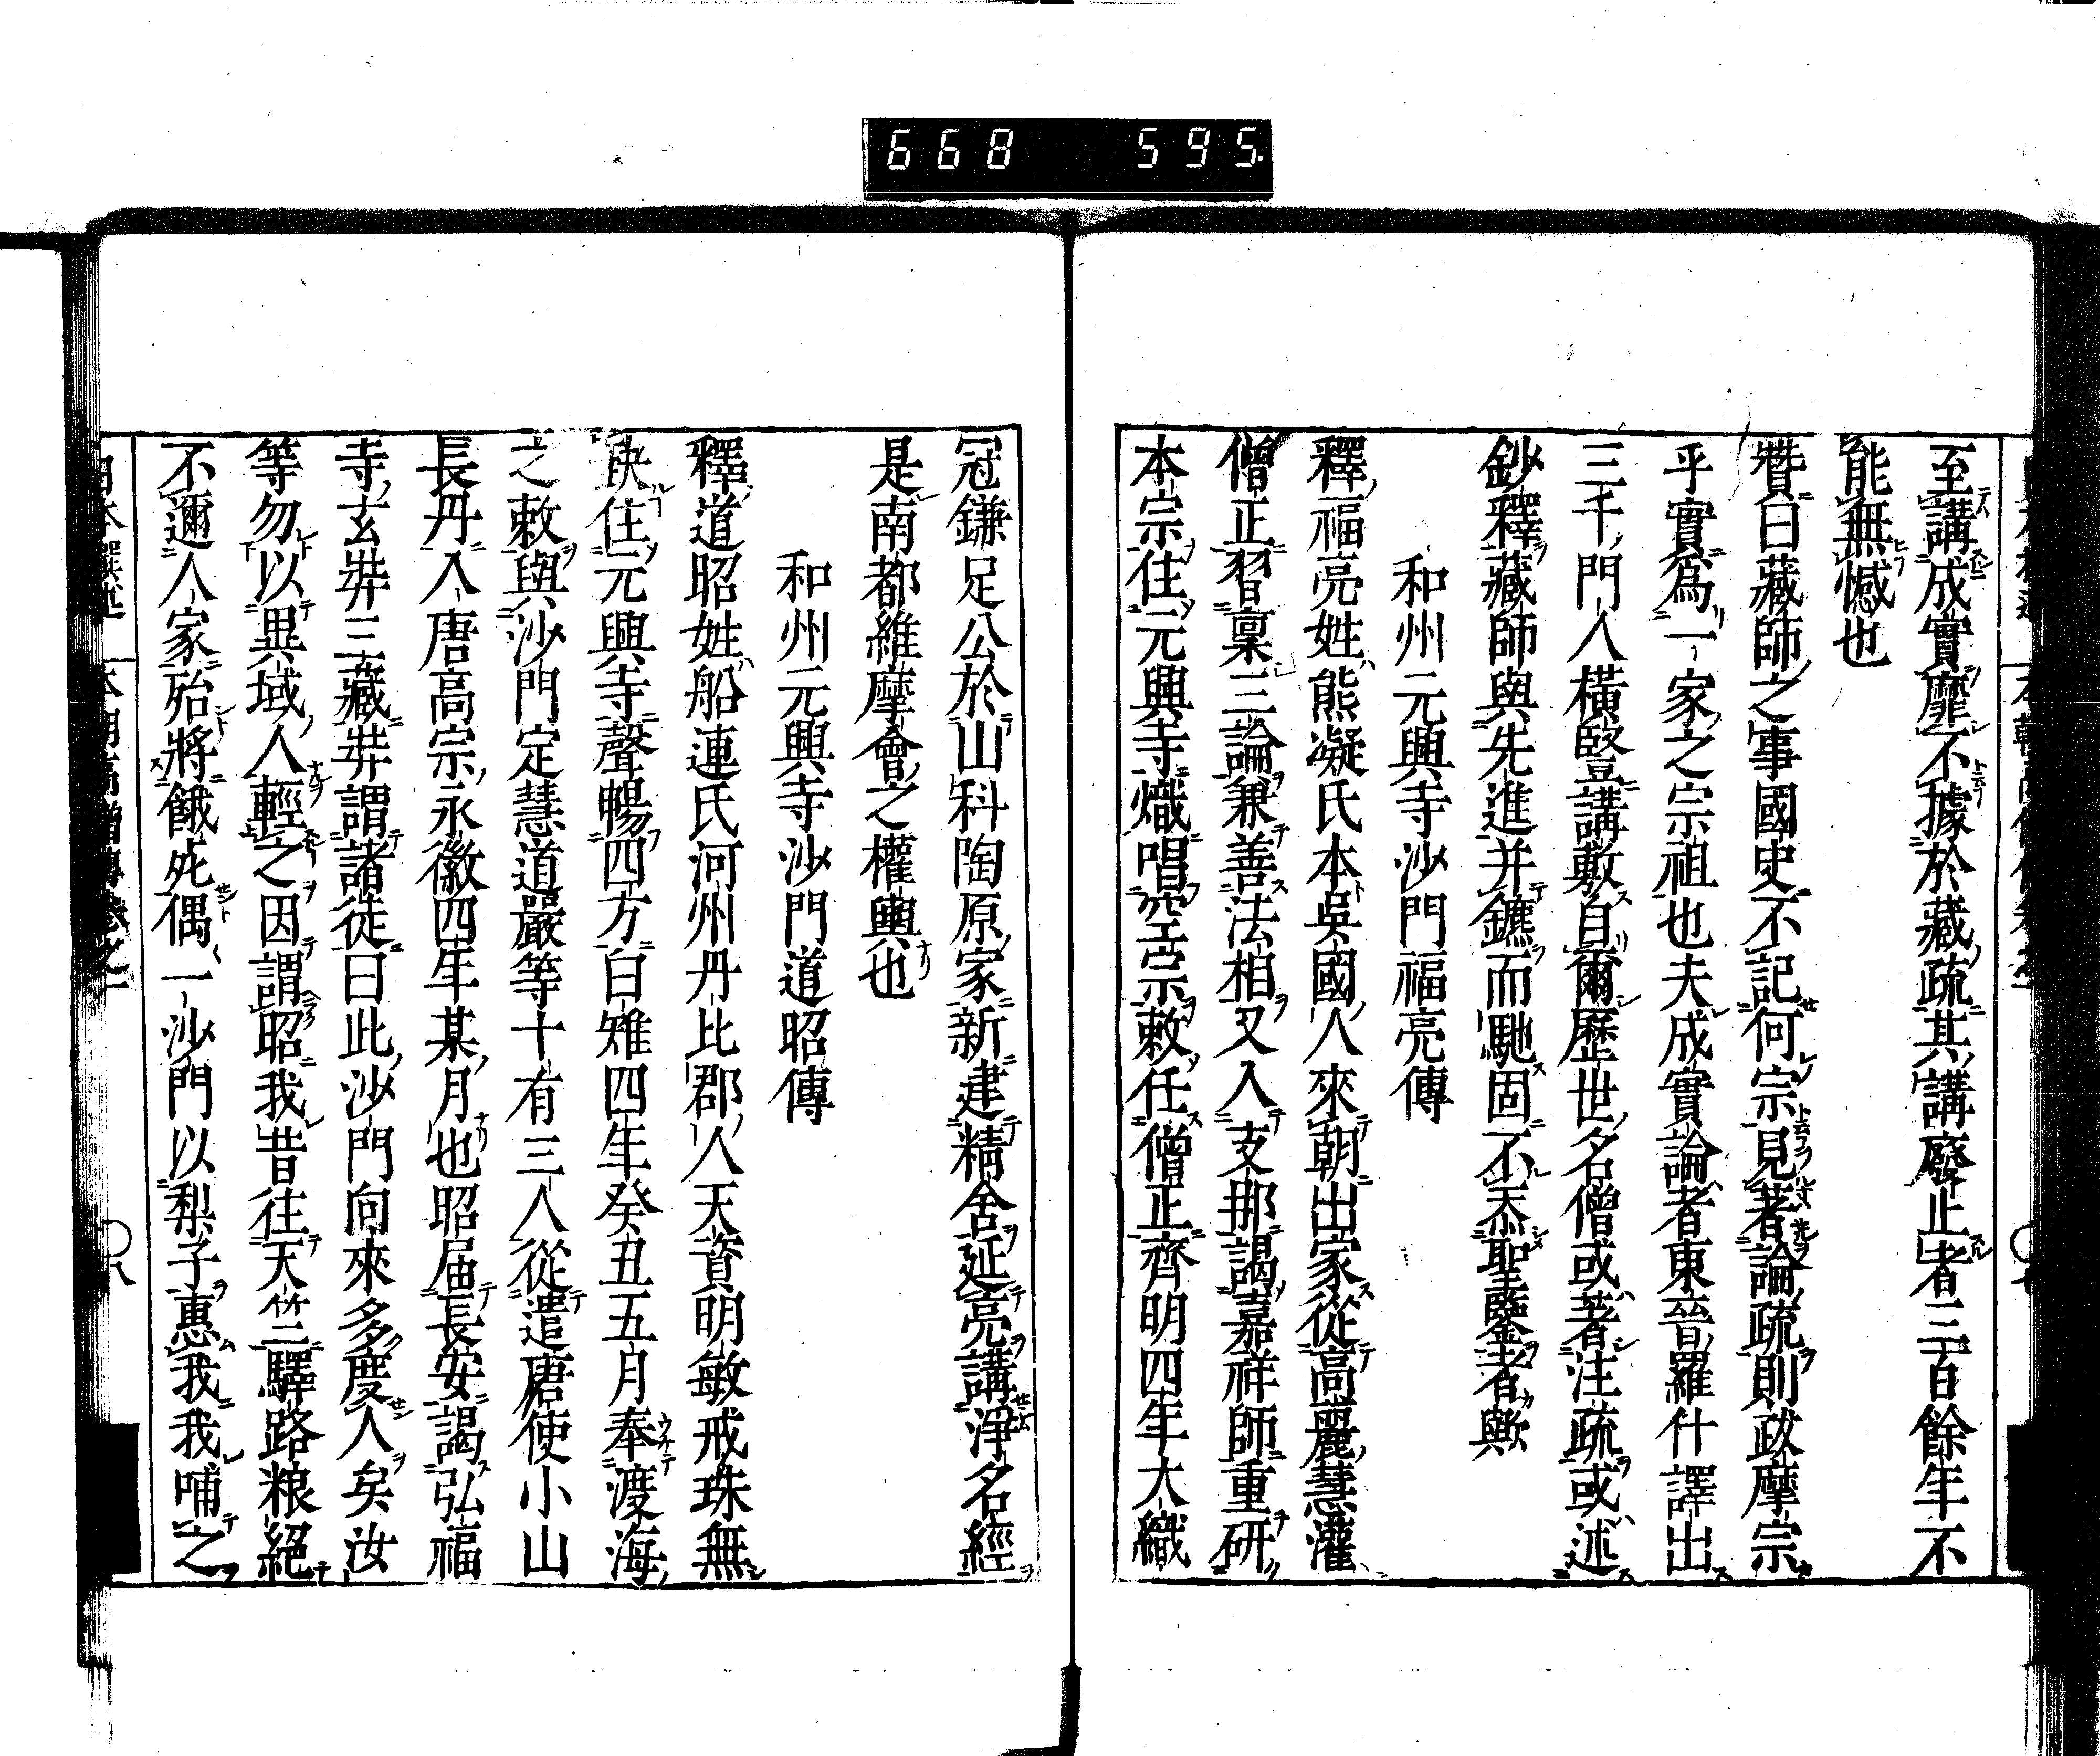 668 595.
至講成實靡不據於藏疏其講廢止者三百餘年不
能無憾也
贊曰藏師之事國史不記何宗見著論疏則跋摩宗
乎實爲一家之宗祖也夫成實論者東晉羅什譯出
三千門人橫竪講敷自爾歷世名僧或著注疏或述
鈔釋藏師與先進并鑣而馳固不忝聖鑒者歟
和州元興寺沙門福亮傳
釋福亮姓熊凝氏本吳國人來朝出家從高麗慧灌
僧正習稟三論兼善法相又入支那謁嘉祥師重研
本宗住元興寺熾唱空宗敕任僧正齊明四年大織
冠鎌足公於山科陶原家新建精舍延亮講淨名經
是南都維摩會之權輿也
和州元興寺沙門道昭傳
釋道昭姓船連氏河州丹比郡人天資明敏戒珠無
缺住元興寺聲暢四方白雉四年癸丑五月奉渡海
之敕與沙門定慧道嚴等十有三人從遣唐使小山
長丹入唐高宗永徽四年某月也昭屆長安謁弘福
寺玄弉三藏弉謂諸徒曰此沙門向來多度人矣汝
等勿以異域人輕之因謂昭我昔往天竺驛路粮絕
不邇人家殆將餓死偶一沙門以梨子惠我我哺之